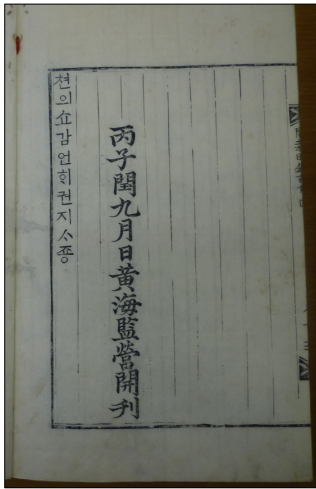 丙子閏九月日黃海監營開刋
쳔의쇼감언ᄒᆡ권지ᄉᆞ죵